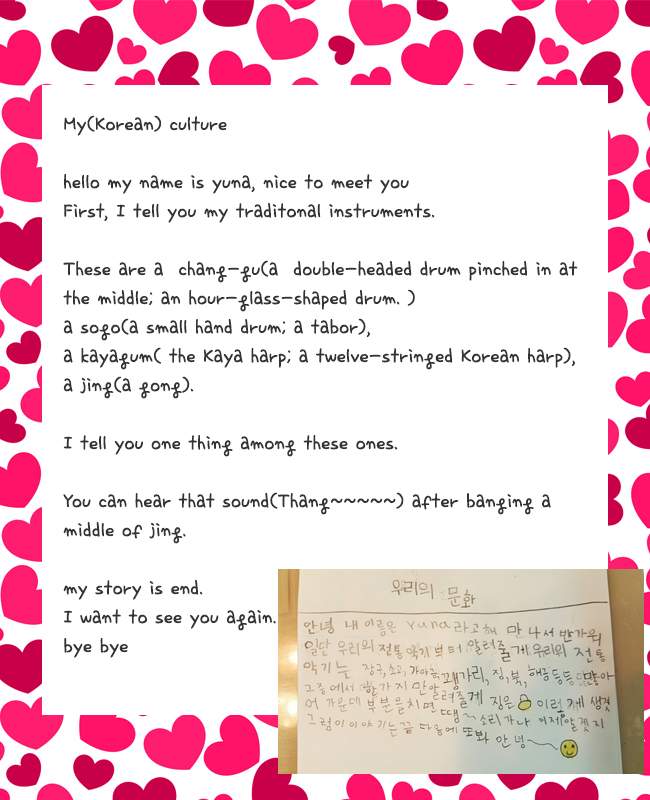 My(Korean) culture
hello my name is yuna, nice to meet you
First, I tell you my traditonal instruments.
These are a chang-gu(a double-headed drum pinched in at
the middle; an hour-glass-shaped drum. )
a sogo(a small hand drum; a tabor),
a kayagum( the Kaya harp; a twelve-stringed Korean harp),
a jing(a gong).
I tell you one thing among these ones.
You can hear that sound(Thang~~~~~) after banging a
middle of jing.
my story is end.
I want to see you again.
bye bye
우리의 문화
안녕 내 이름은 yuna라고해 만나서 반가워
일단 우리의 전통악기부터 알려줄게 우리의 전통
악기는 장구, 소고, 가야금, 꽹가리, 징, 북, 해금 등등 많아
그중에서 한가지만 알려줄게 징은 이렇게 생겼
어 가운데 부분을 치면 땡~ 소리가 나 이제 알겟지
그럼 이 이야기는 끝 다음에 또봐 안녕~